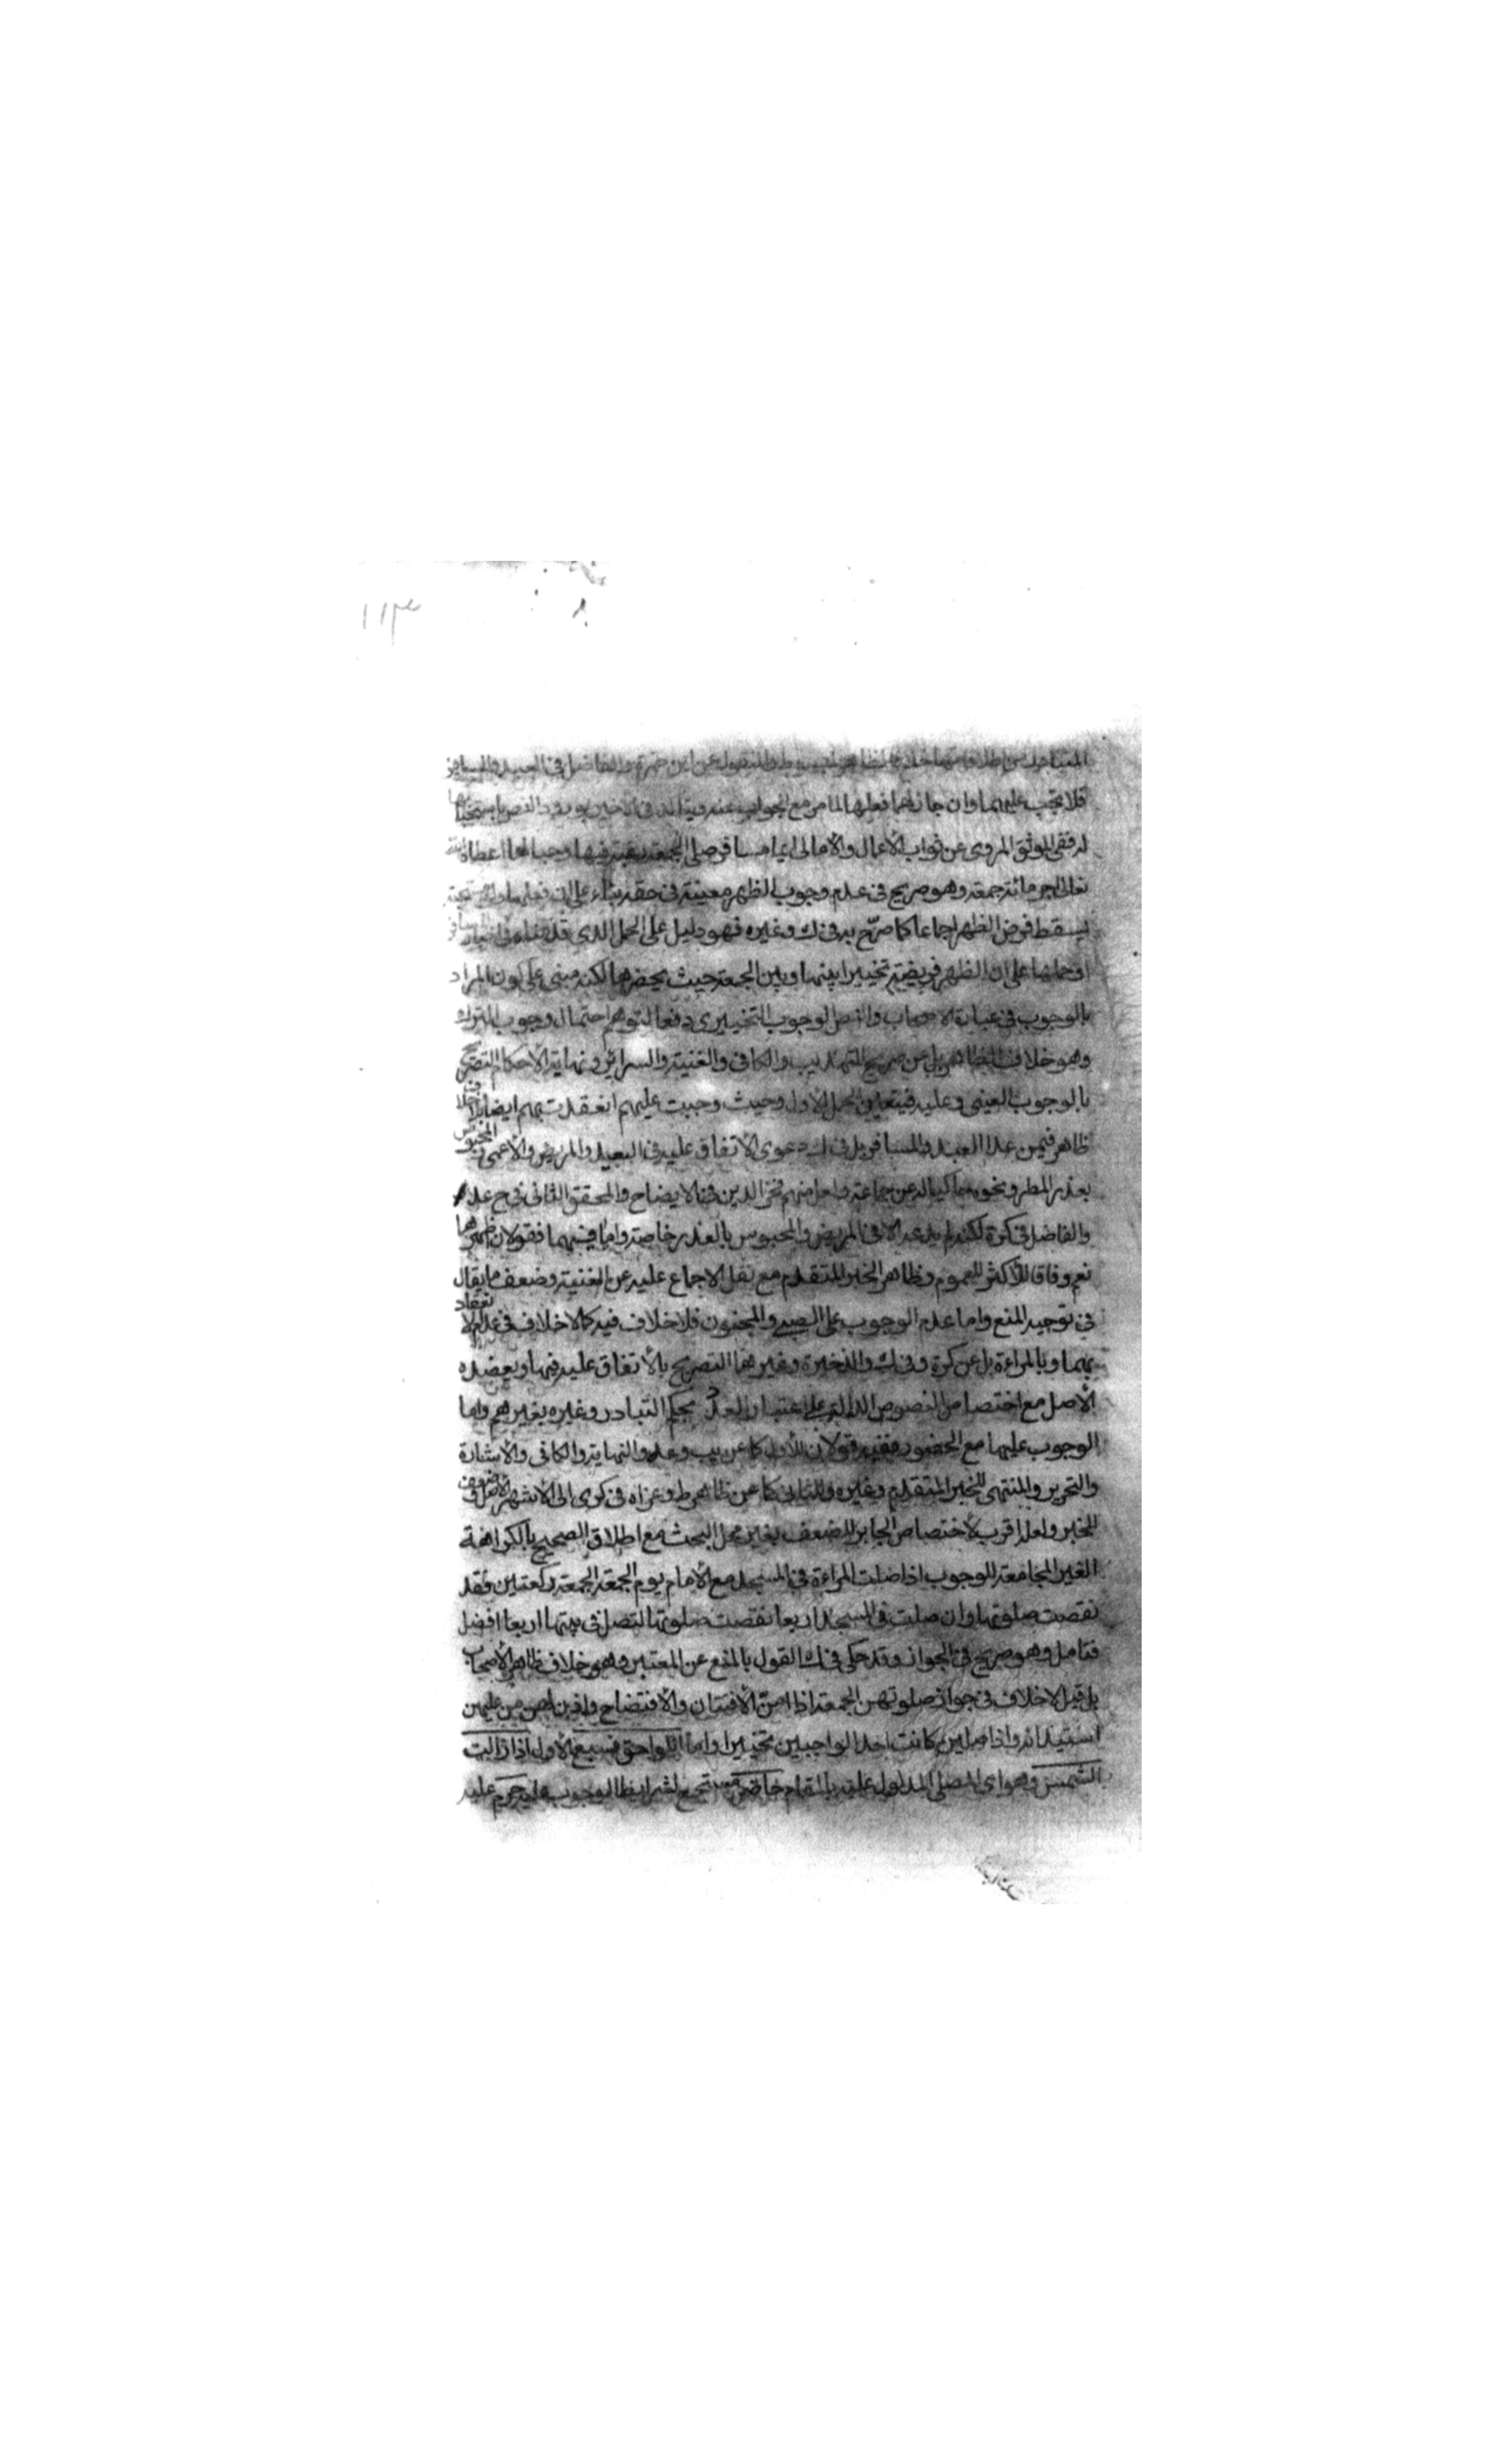 ١١٣
فلا يجب عليهما وان جاز لهما فعلها لما مر مع الجواب عنه ويتأيد في الاخير بورود النص باستحبابها
له ففي الموثق المروي عن ثواب الأعمال والأمالى ايما مسافر صلى الجمعة رغبة فيها وحبا لها اعطاه الله
تعالى اجر مائة جمعة وهو صريح في عدم وجوب الظهر معينة في حقه بناء على ان فعلها
يسقط فرض الظهر اجماعا كما صرّح به في ك وغيره فهو دليل على الحمل الذي قدمناه في
او حملها على ان الظهر فريضته تخييرا بينها وبين الجمعة حيث يحضرها لكنه مبني على كون المراد
بالوجوب في عبارة الاصحاب والنص الوجوب التخييري دفعا لتوهم احتمال وجوب الترك
وهو خلاف الظاهر بل عن صريح التهذيب والكافي والغنية والسرائر ونهاية الأحكام التصريح
بالوجوب العيني وعليه فيتعين الحمل الأول وحيث وجبت عليهم انعقدت بهم ايضا بلا خلاف
ظاهر فيمن عدا العبد والمسافر بل في ك دعوى الاتفاق عليه في البعيد والمريض والاعمى والمحبوس
بعذر المطر ونحوه مما حكياه عن جماعة واحد منهم فخر الدين في الايضاح والمحقق الثاني في ح عد
والفاضل في كرة لكنه لم يدعه الا في المريض والمحبوس بالعذر خاصة واما فيهما فقولان اظهرهما
نعم وفاقا للأكثر للعموم وظاهر الخبر المتقدم مع نقل الاجماع عليه عن الغنية وضعف ما يقال
في توجيه المنع واما عدم الوجوب على الصبي والمجنون فلا خلاف فيه كالاخلاف في عدم الانعقاد
بهما وبالمراءة بل عن كرة وفي ك والذخيرة وغيرهما التصريح بالأتفاق عليه فيها ويعضده
الأصل مع اختصاص النصوص الدالة على اعتبار العدد بحكم التبادر وغيره بغيرهم واما
الوجوب عليها مع الحضور ففيه قولان للأول كما عن يب وعد والنهاية والكافي والاشارة
والتحرير والمنتهى للخبر المتقدم وغيره وللثاني كما عن ظاهر ط وعزاه في كرى الى الأشهر الاصل وضعف
الخبر ولعله اقرب لأختصاص الجابر للضعف بغير محل البحث مع اطلاق الصحيح بالكراهة
الغير المجامعة للوجوب اذا صلت المراءة في المسجد مع الأمام يوم الجمعة الجمعة ركعتين فقد
نقصت صلوتها وان صلت في المسجد اربعا نقصت صلوتها لتصل في بيتها اربعا افضل
فتامل وهو صريح في الجواز وقد حكى في ك القول بالمنع عن المعتبر وهو خلاف ظاهر الأصحاب
بل قيل لاخلاف في جواز صلوتهن الجمعة اذا امنّ الافتتان والافتضاح واذن لهن من عليهن
استيذانه واذا صلين كانت احد الواجبين تخييرا واما اللواحق فسبع الأول اذا زالت
الشمس وهو اي المصلي المدلول عليه بالمقام حاضر مستجمع لشرايط الوجوب عليه حرم عليه